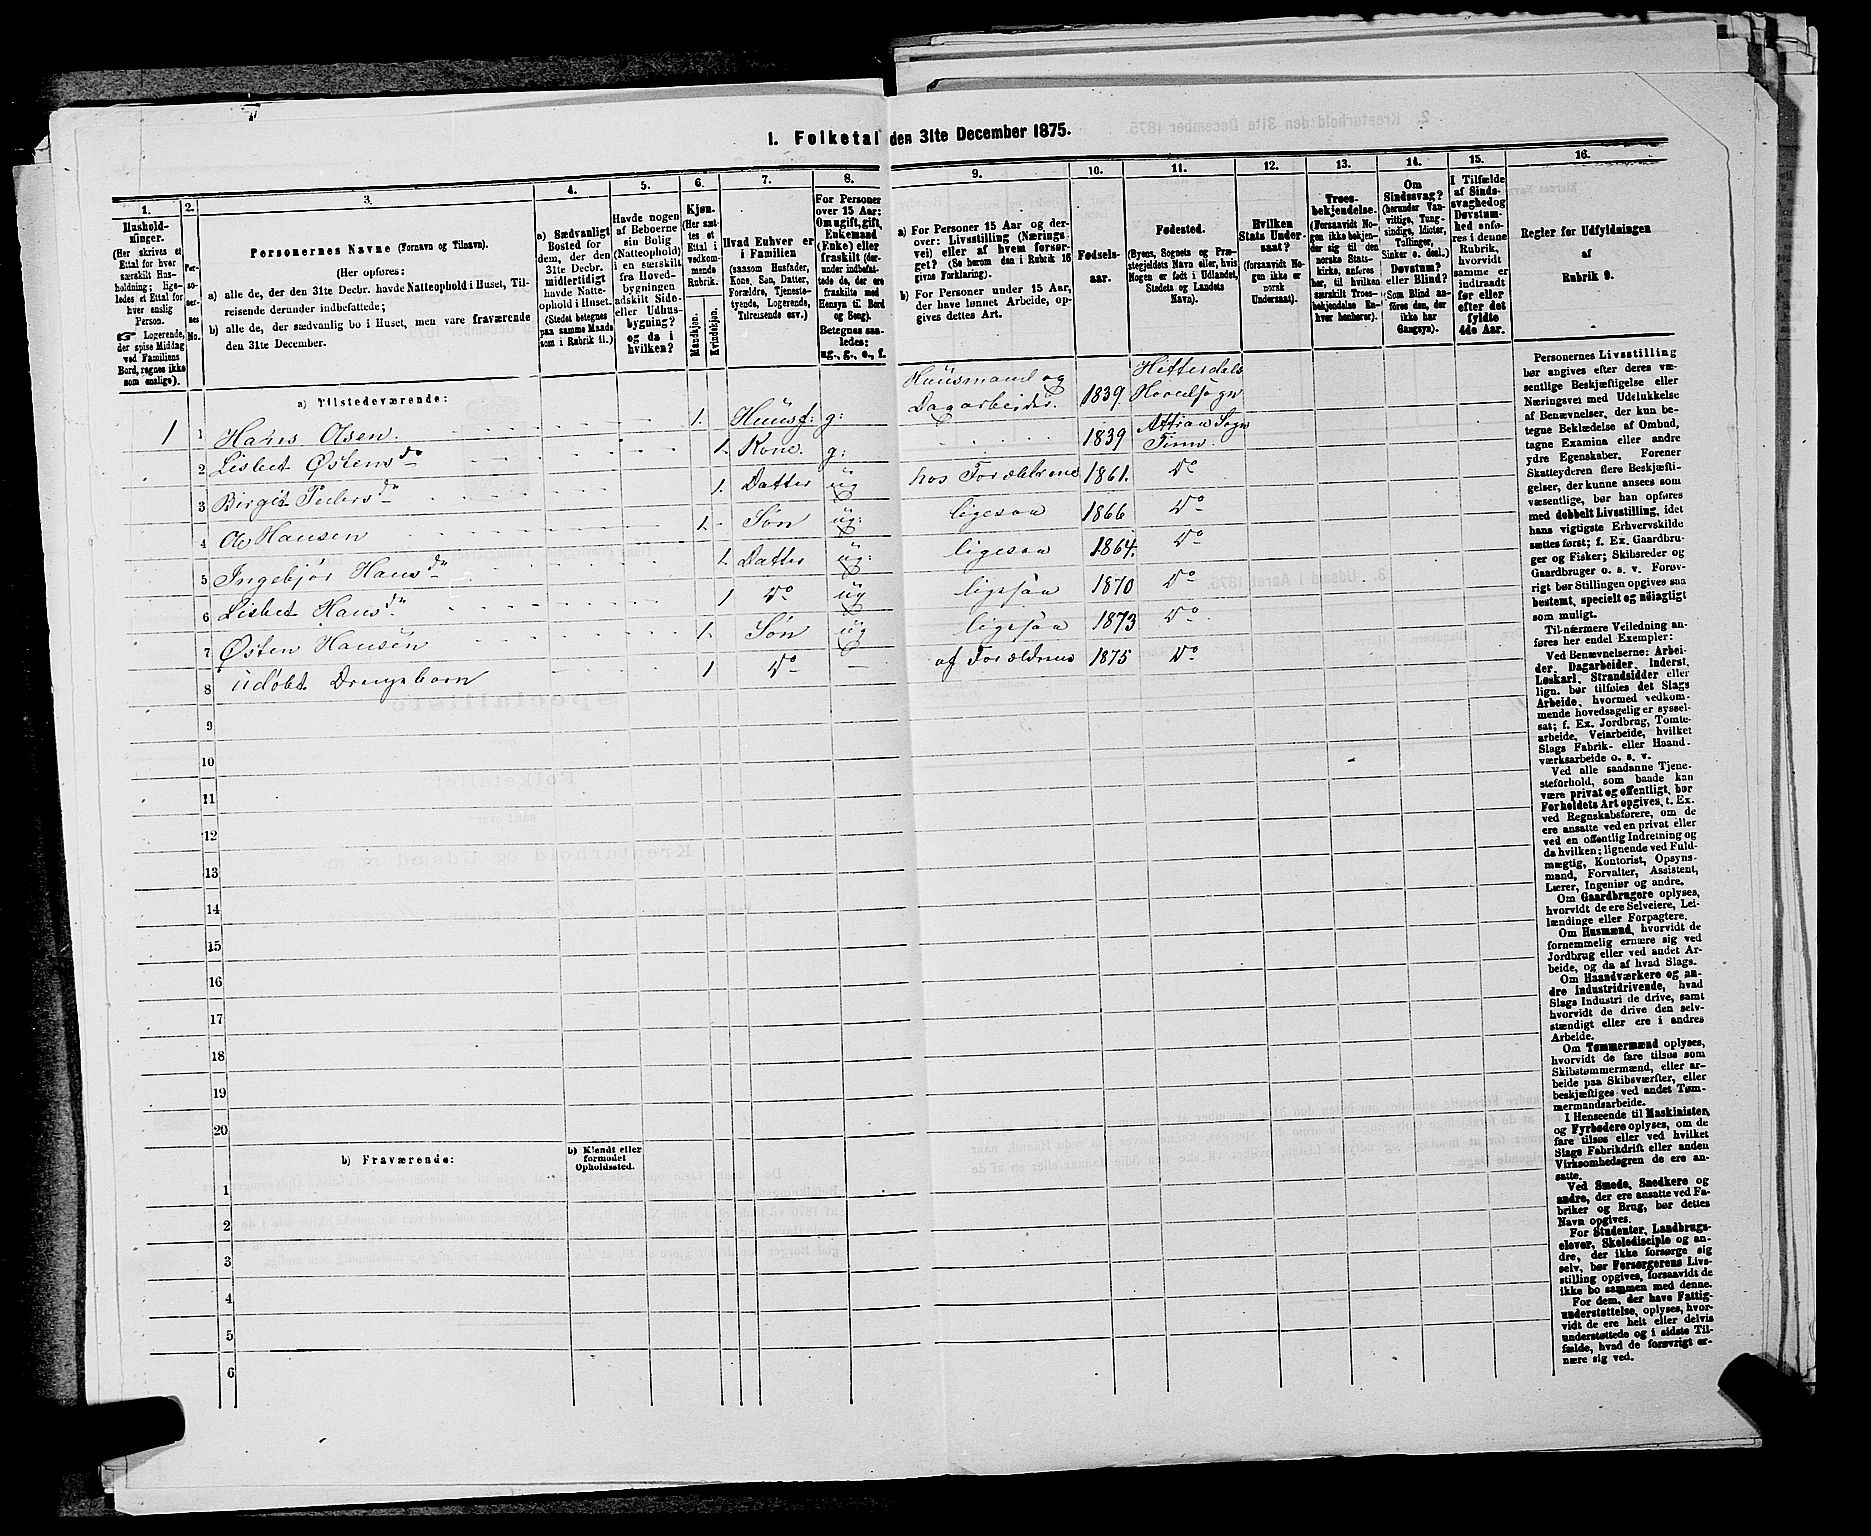 1. Folketal den 31te December 1875.
1.
Hushold-
ninger.
(Her skrives et
Ettal for hver
særskilt Hus-
holdning; lige-
ledes et Ettal for
hver enslig
Person.
☞ Logerende,
der spise Middag
ved Familiens
Bord, regnes ikke
som enslige).
2.
Per-
so-
ner-
nes
No.
3.
Personernes Navne (Fornavn og Tilnavn).
(Her opføres:
a) alle de, der den 31te Decbr. havde Natteophold i Huset, Til-
reisende derunder indbefattede;
b) alle de, der sædvanlig bo i Huset, men vare fraværende
den 31te December.
4.
a) Sædvanligt
Bosted for
dem, der den
31te Decbr.
midlertidigt
havde Natte-
ophold i Huset.
(Stedet betegnes
paa samme Maade
som i Rubrik 11.)
5.
Havde nogen
af Beboerne
sin Bolig
(Natteophold)
i en særskilt
fra Hoved-
bygningen
adskilt Side-
eller Udhus-
bygning?
og da i
hvilken?
6.
Kjøn.
(Her sæt-
tes et
Ettal i
vedkom-
mende
Rubrik.
Mandkjøn.
Kvindekjøn.
7.
Hvad Enhver er
i Familien
(saasom Husfader,
Kone, Søn, Datter,
Forældre, Tjeneste-
tyende, Logerende,
Tilreisende osv.)
8.
For Personer
over 15 Aar:
Om ugift, gift,
Enkemand
(Enke) eller
fraskilt (der-
under indbefat-
tede de, der ere
fraskilte med
Hensyn til Bord
og Seng).
Betegnes saa-
ledes:
ug., g., e., f.
9.
a) For Personer 15 Aar og der-
over: Livsstilling (Nærings-
vei) eller af hvem forsør-
get? (Se herom den i Rubrik 16
givne Forklaring).
b) For Personer under 15 Aar,
der have lønnet Arbeide, op-
gives dettes Art.
10.
Fødsels-
aar.
11.
Fødested.
(Byens, Sognets og Præ-
stegjeldets Navn eller, hvis
Nogen er født i Udlandet,
Stedets og Landets
Navn).
12.
Hvilken
Stats Under-
saat?
(forsaavidt No-
gen ikke er
norsk
Undersaat).
13.
Troes-
bekjendelse.
(Forsaavidt No-
gen ikke bekjen-
der sig til den
norske Stats-
kirke, anføres
her, til hvilken
særskilt Troes-
bekjendelse En-
hver henhører).
14.
Om
Sindssvag?
(herunder Van-
vittige, Tung-
sindige, Idioter,
Tullinger,
Sinker o. desl.)
Døvstum?
eller Blind?
(Som Blind an-
føres den, der
ikke har
Gangsyn).
15.
I Tilfælde
af Sinds-
svaghed og
Døvstum-
hed anfø-
res i denne
Rubrik,
hvorvidt
samme er
indtraadt
før eller
efter det
fyldte
4de Aar.
16.
Regler for Udfyldningen
af
Rubrik 9.
a) Tilstedeværende:
1 1 Hans Olsen. 1. Huusf: g: Huusmand og Dagarbeider. 1839 Hitterdals Hovedsogn
2 Lisbet Østensdr 1. Kone. g: 1839 Attraa Sogn Tinn.
3 Birgit Pedersdr 1. Datter ug hos Forældrene 1861. Do
4 Ole Hansen 1. Søn ug: ligesaa 1866 Do
5 Ingebjør Hansdr 1. Datter ug: ligesaa 1864. Do
6 Lisbet Hansdr 1 Do ug ligesaa 1870 Do
7 Østen Hansen 1. Søn ug ligesaa 1873 Do
8 udøbt Drengebarn 1 Do af Forældrene 1875 Do
9
10
11
12
13
14
15
16
17
18
19
20
b) Fraværende:
b) Kjendt eller
formodet
Opholdssted.
1
2
3
4
5
6
Personernes Livsstilling
bør angives efter deres væ-
sentlige Beskjæftigelse eller
Næringsvei med Udelukkelse
af Benævnelser, der kun be-
tegne Beklædelse af Ombud,
tagne Examina eller andre
ydre Egenskaber. Forener
Skatteyderen flere Beskjæfti-
gelser, der kunne ansees som
væsentlige, bør han opføres
med dobbelt Livsstilling, idet
hans vigtigste Erhvervskilde
sættes først; f. Ex. Gaardbru-
ger og Fisker; Skibsreder og
Gaardbruger o. s. v. Forøv-
rigt bør Stillingen opgives saa
bestemt, specielt og nøiagtigt
som muligt.
Til nærmere Veiledning an-
føres her endel Exempler:
Ved Benævnelserne: Arbei-
der, Dagarbeider, Inderst,
Løskarl, Strandsidder eller
lign. bør tilføies det Slags
Arbeide, hvormed vedkom-
mende hovedsagelig er syssel-
sat; f. Ex. Jordbrug, Tomte-
arbeide, Veiarbeide, hvilket
Slags Fabrik- eller Haand-
værksarbeide o. s. v.
Ved alle saadanne Tjene-
steforhold, som baade kan
være privat og offentligt, bør
Forholdets Art opgives, t. Ex.
ved Regnskabsførere, om de
ere ansatte ved en privat eller
ved en offentlig Indretning og
da hvilken; lignende ved Fuld-
mægtig, Kontorist, Opsyns-
mand, Forvalter, Assistent,
Lærer, Ingeniør og andre.
Om Gaardbrugere oplyses,
hvorvidt de ere Selveiere, Lei-
lændinge eller Forpagtere.
Om Husmænd, hvorvidt de
fornemmelig ernære sig ved
Jordbrug eller ved andet Ar-
beide, og da af hvad Slags.
Om Haandværkere og an-
dre Industridrivende, hvad
Slags Industri de drive, samt
hvorvidt de drive den selv-
stændigt eller ere i andres
Arbeide.
Om Tømmermænd oplyses,
hvorvidt de fare tilsøs som
Skibstømmermænd, eller ar-
beide paa Skibsværfter, eller
beskjæftiges ved andet Tøm-
mermandsarbeide.
I Henseende til Maskinister
og Fyrbødere oplyses, om de
fare tilsøs eller ved hvilket
Slags Fabrikdrift eller anden
Virksomhedsgren de ere an-
satte.
Ved Smede, Snedkere og
andre, der ere ansatte ved Fa-
briker og Brug, bør dettes
Navn opgives.
For Studenter, Landbrugs-
elever, Skoledisciple og an-
dre, der ikke forsørge sig
selv, bør Forsørgerens Livs-
stilling opgives, forsaavidt de
ikke bo sammen med denne.
For dem, der have Fattig-
understøttelse, oplyses, hvor-
vidt de ere helt eller delvis
understøttede og i sidste Til-
fælde, hvad de forøvrigt er-
nære sig ved.